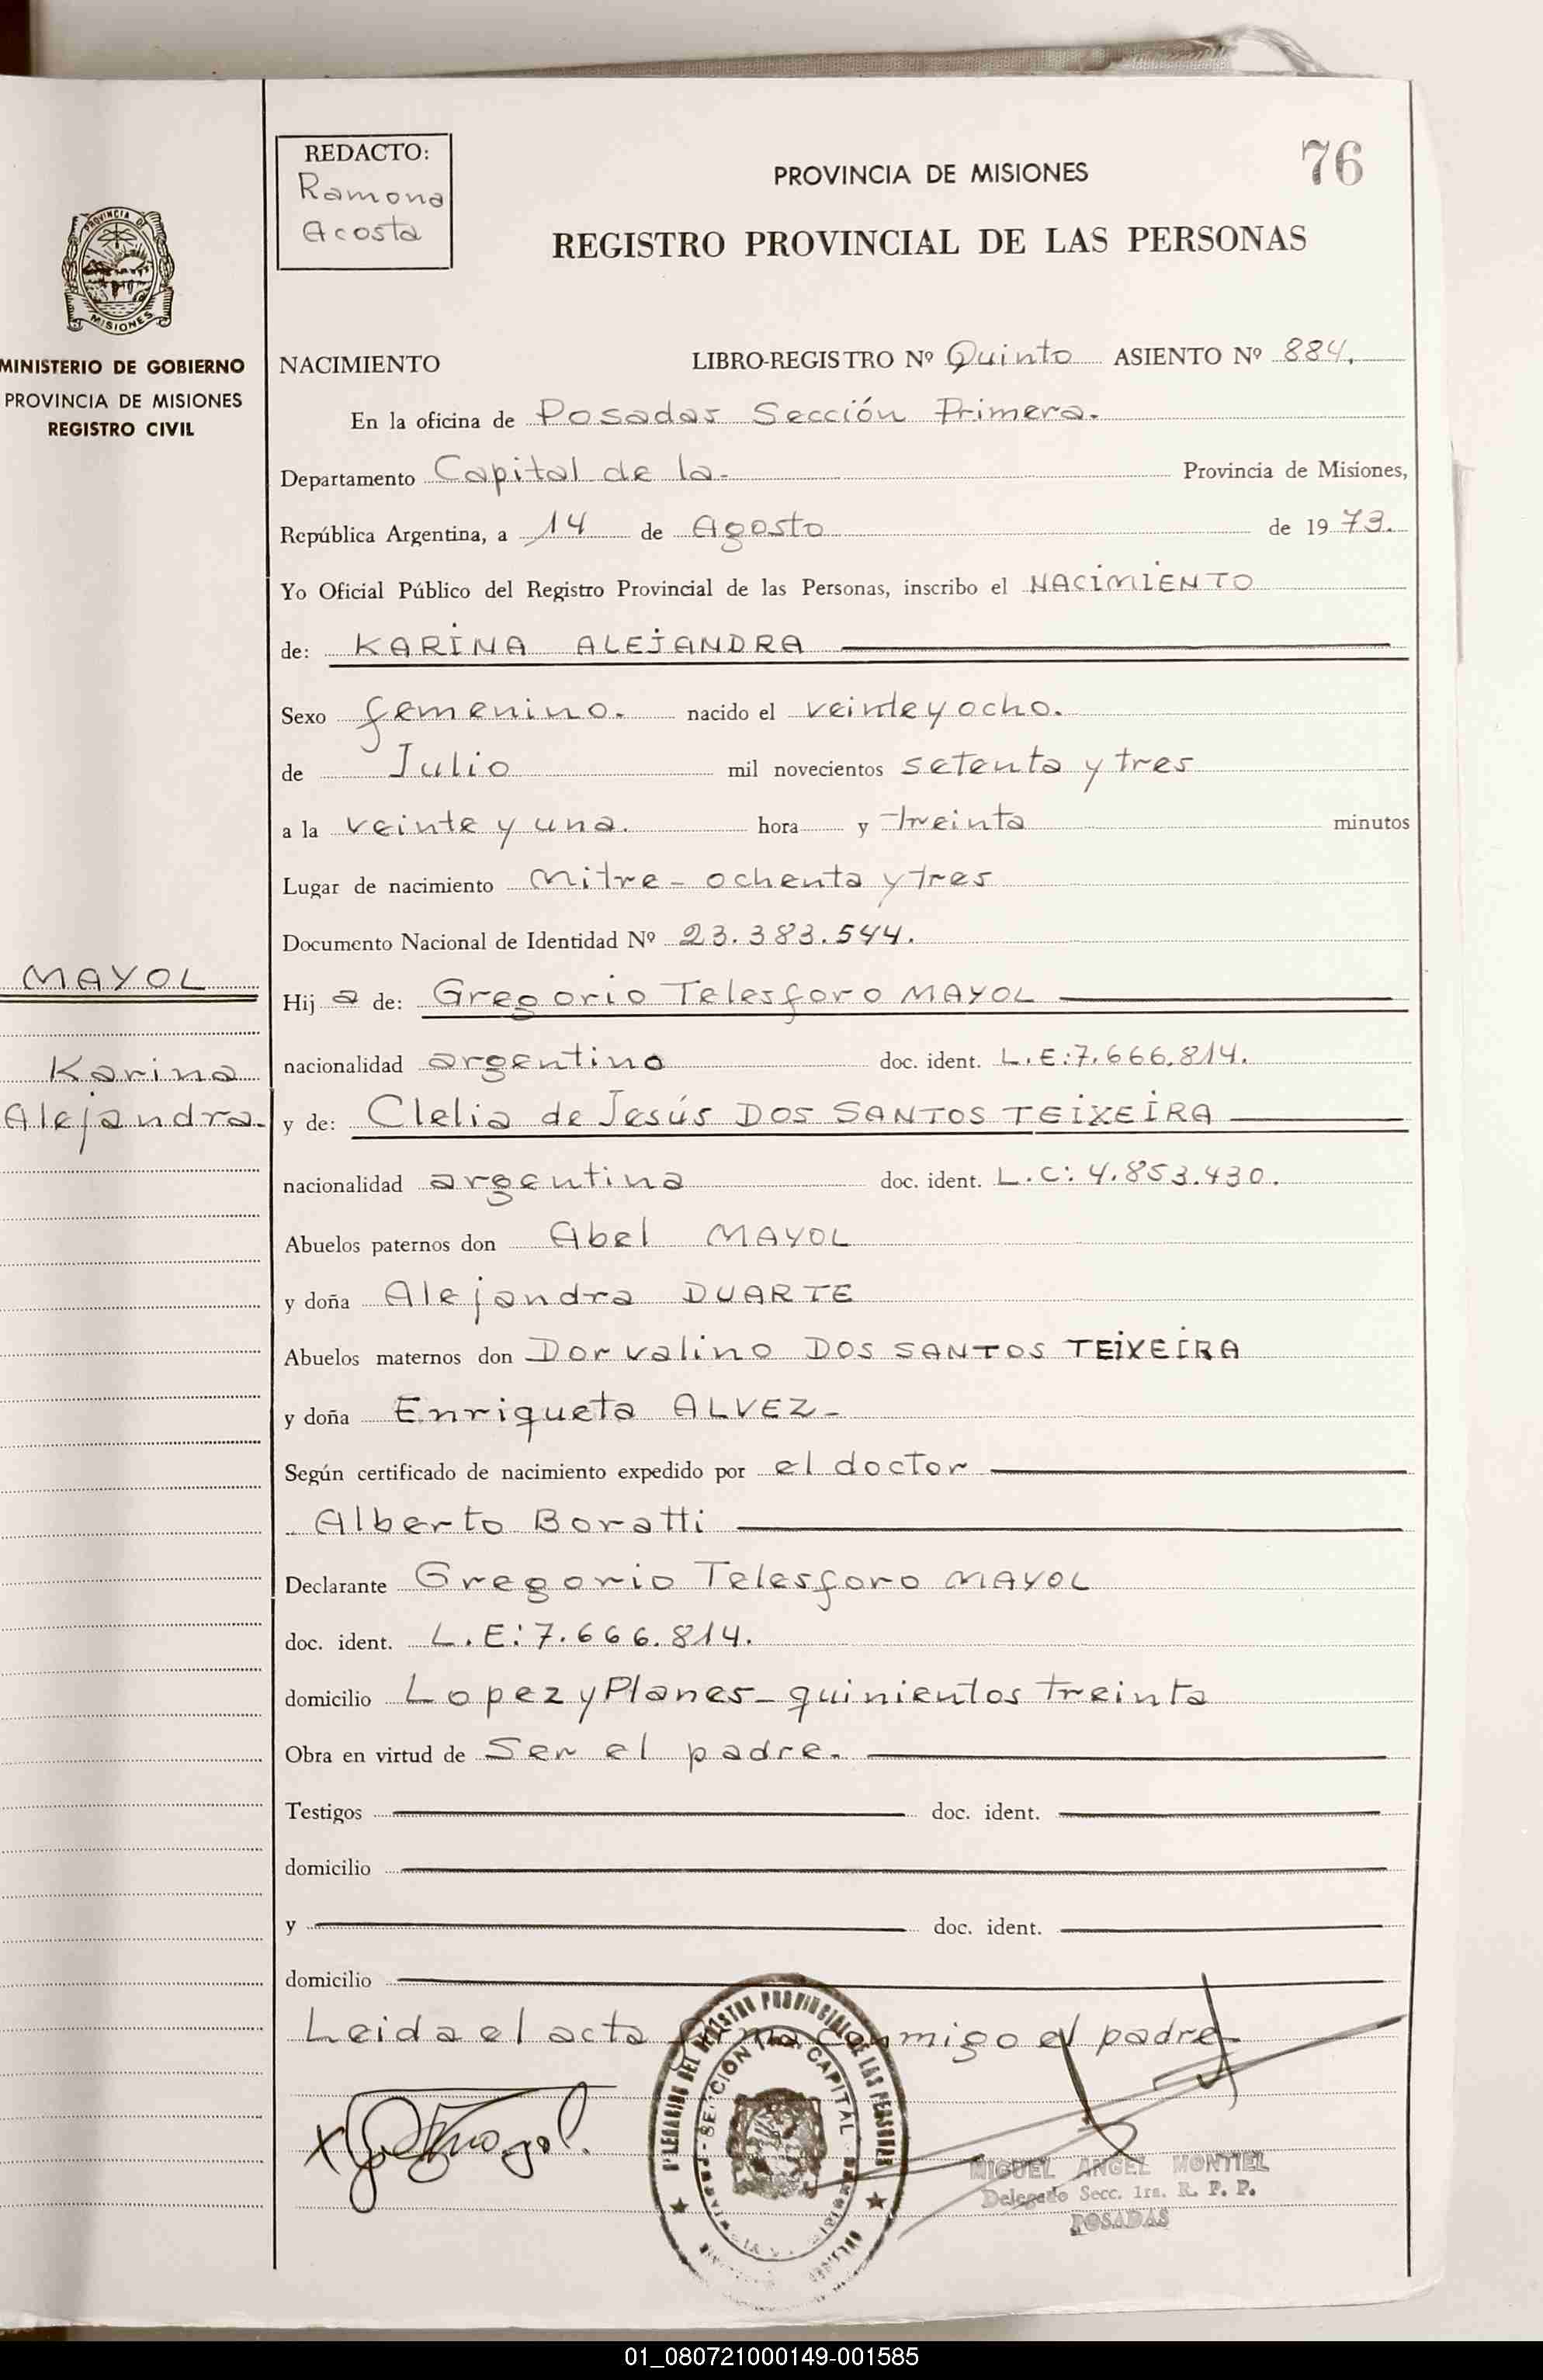 76
REDACTO:
Ramona
Acosta
PROVINCIA DE MISIONES
REGISTRO PROVINCIAL DE LAS PERSONAS
PROVINCIA DE
MISIONES
MINISTERIO DE GOBIERNO
PROVINCIA DE MISIONES
REGISTRO CIVIL
NACIMIENTO LIBRO-REGISTRO Nº Quinto ASIENTO Nº 884.
En la oficina de Posadas Sección Primera.
Departamento Capital de la- Provincia de Misiones,
República Argentina, a 14 de Agosto de 1973.
Yo Oficial Público del Registro Provincial de las Personas, inscribo el NACIMIENTO
de: KARINA ALEJANDRA
Sexo femenino. nacido el veinte y ocho.
de Julio mil novecientos setenta y tres
a la veinte y una. hora y treinta minutos
Lugar de nacimiento Mitre - ochenta y tres
Documento Nacional de Identidad Nº 23.383.544.
MAYOL
Hija de: Gregorio Telesforo MAYOL
Karina
nacionalidad argentino doc. ident. L.E:7.666.814.
Alejandra.
y de: Clelia de Jesús DOS SANTOS TEIXEIRA
nacionalidad argentina doc. ident. L.C: 4.853.430.
Abuelos paternos don Abel MAYOL
y doña Alejandra DUARTE
Abuelos maternos don Dorvalino DOS SANTOS TEIXEIRA
y doña Enriqueta ALVEZ-
Según certificado de nacimiento expedido por el doctor
Alberto Boratti
Declarante Gregorio Telesforo MAYOL
doc. ident. L.E:7.666.814.
domicilio Lopez y Planes - quinientos treinta
Obra en virtud de Ser el padre.
Testigos doc. ident.
domicilio
y doc. ident.
domicilio
Leida el acta firma conmigo el padre-
REGISTRO PROVINCIAL DE LAS PERSONAS
SECCION 1ra. CAPITAL
MIGUEL ANGEL MONTIEL
Delegado Secc. 1ra. R. P. P.
POSADAS
01_080721000149-001585